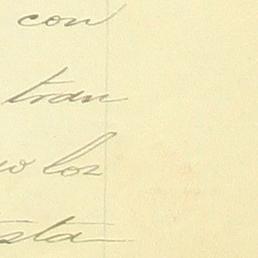 con
tran
los
sta